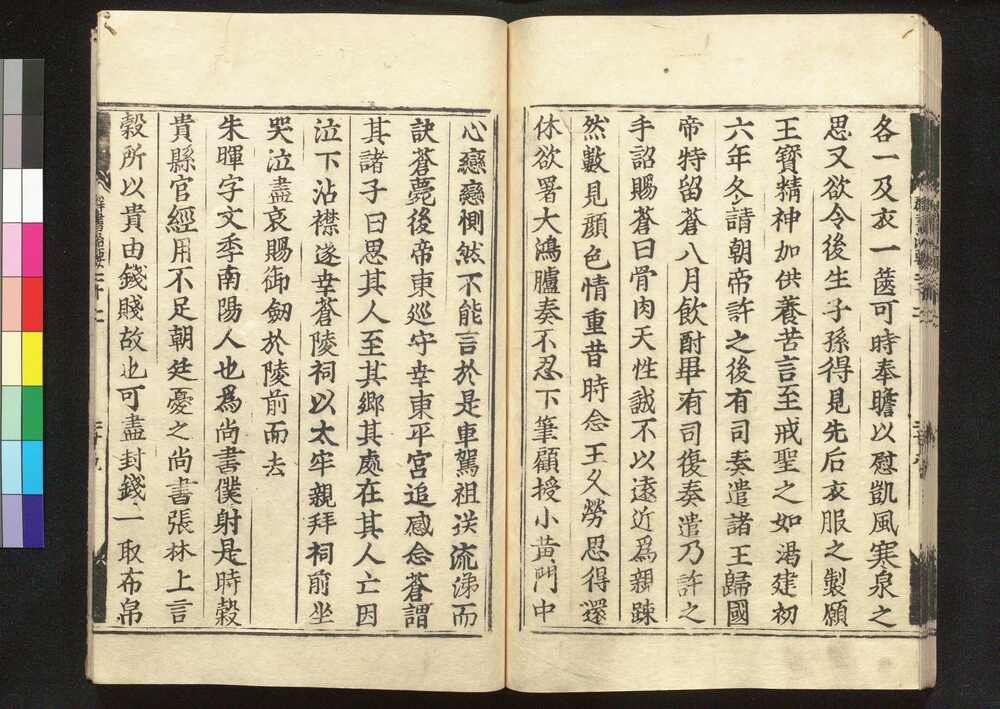 各一及衣一篋可時奉瞻以慰凱風寒泉之
思又欲令後生子孫得見先后衣服之製願
王寶精神加供養苦言至戒聖之如渇建初
六年冬請朝帝許之後有司奏遣諸王歸國
帝特留蒼八月飲酎畢有司復奏遣乃許之
手詔賜蒼曰骨肉天性誠不以遠近爲親踈
然數見顔色情重昔時念王乆勞思得還
休欲署大鴻臚奏不忍下筆顧授小黄門中
心戀戀惻然不能言於是車駕祖送流涕而
訣蒼薨後帝東巡守幸東平宮追感念蒼謂
其諸子曰思其人至其鄉其處在其人亡因
泣下沾襟遂幸蒼陵祠以太牢親拜祠前坐
哭泣盡哀賜御劒於陵前而去
朱暉字文季南陽人也爲尚書僕射是時穀
貴縣官經用不足朝廷憂之尚書張林上言
穀所以貴由錢賤故也可盡封錢一取布帛
群書治要二十二